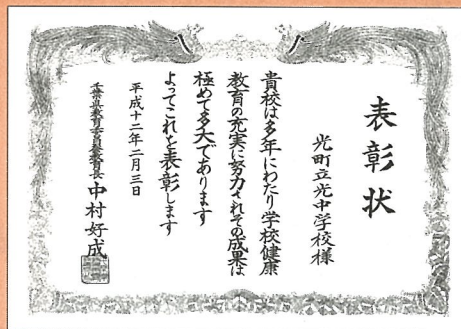 表彰状
光町立光中学校様
貴校は多年にわたり学校健康
教育の充実に努力されその成果は
極めて多大であります
よってこれを表彰します
平成十二年二月三日
千葉県教育委員会教育長 中村好成